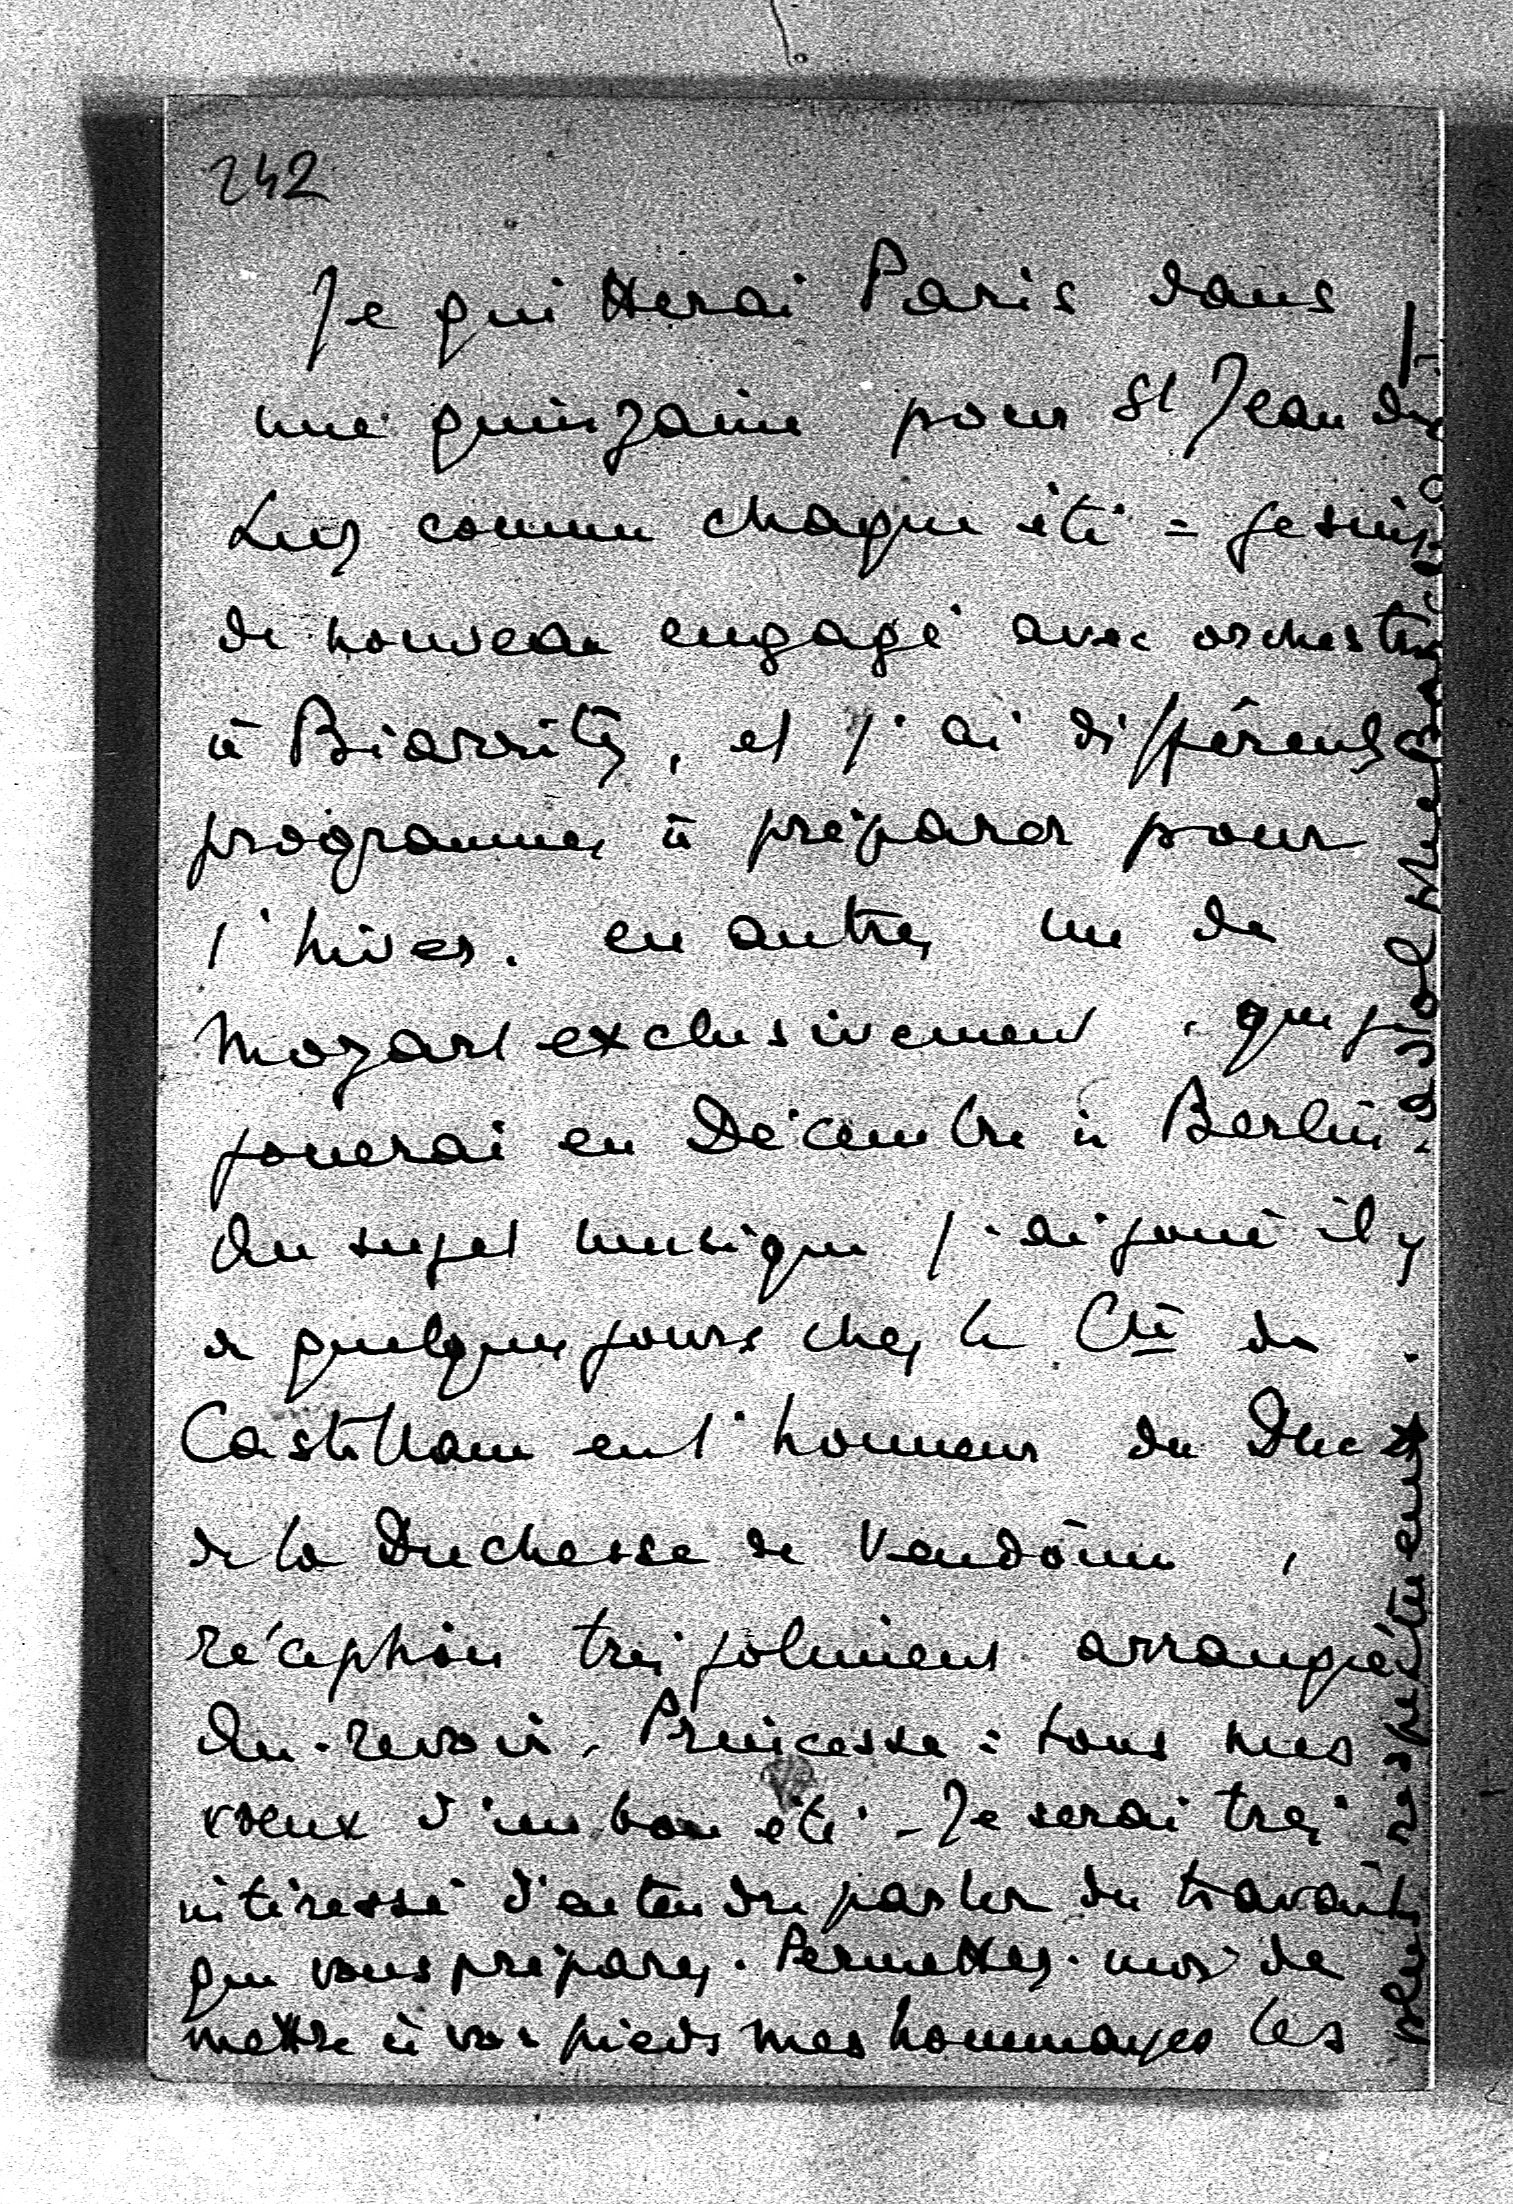 242
Je quitterai Paris dans
une quinzaine pour St Jean de
Luz comme chaque été = Je suis
de nouveau engagé avec orchestre
à Biarritz, et j'ai différents
programmes à préparer pour
l'hiver. en autres un de
Mozart exclusivement, que je
jouerai en Décembre à Berlin.
Au sujet musique j'ai joué il y
a quelques jours chez le Cte de
Castellane en l'honneur du Duc et
de la Duchesse de Vendôme,
réception très joliment arrangée
Au-revoir, Princesse = tous mes
voeux d'un bon été - Je serai très
intéressé d'entendre parler du travail
que vous préparez. Permettez-moi de
mettre à vos pieds mes hommages les
plus respectueux.